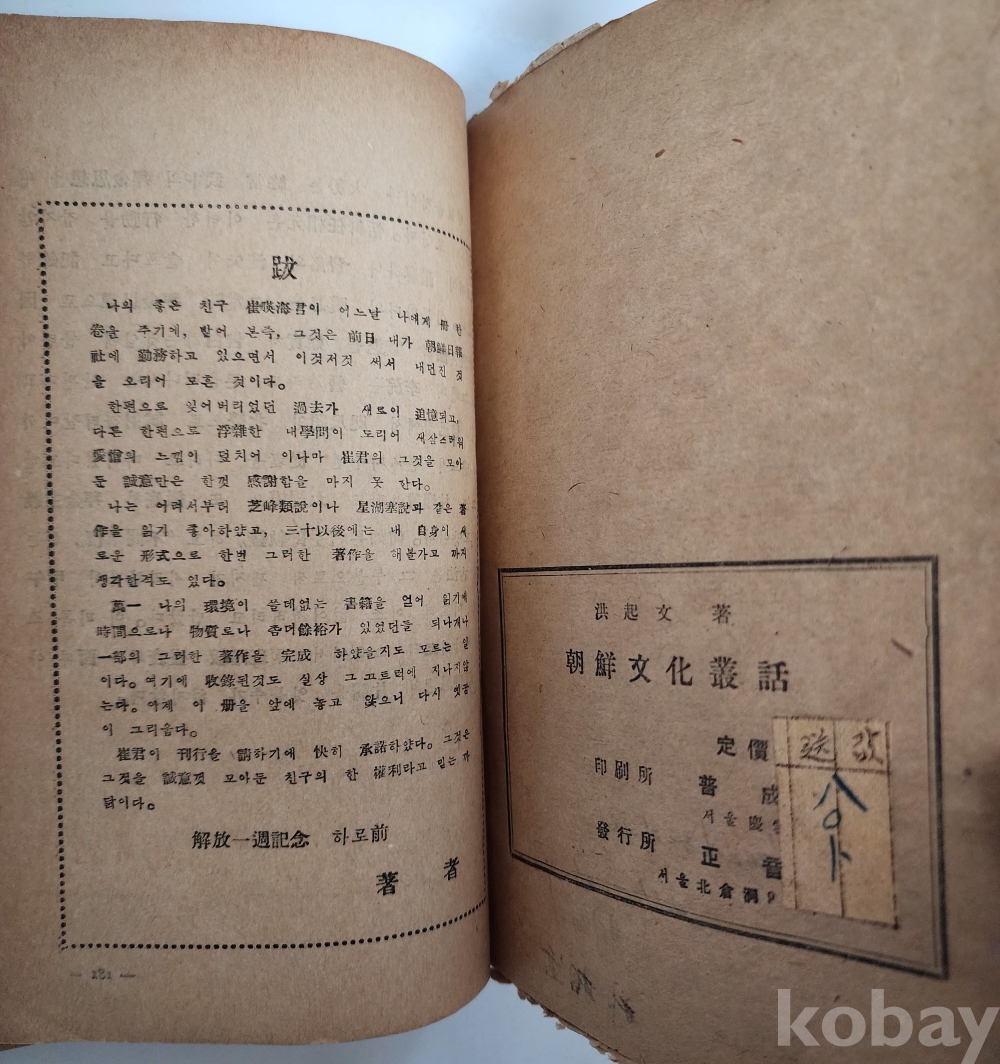 跋
나의 좋은 친구 崔暎海君이 어느날 나에게 册 한
卷을 주기에, 받어 본즉, 그것은 前日 내가 朝鮮日報
社에 勤務하고 있으면서 이것저것 써서 내던진 것
을 오리어 모흔 것이다。
한편으로 잊어버리었던 過去가 새로이 追憶되고,
다른 한편으로 浮雜한 내學問이 도리어 새삼스러워
愛憎의 느낌이 덮치어 이나마 崔君의 그것을 모아
둔 誠意만은 한껏 感謝함을 마지 못 한다。
나는 어려서부터 芝峰類說이나 星湖塞說과 같은 著
作을 읽기 좋아하얐고, 三十以後에는 내 自身이 새
로운 形式으로 한번 그러한 著作을 해볼가고 까지
생각한적도 있다。
萬一 나의 環境이 쓸데없는 書籍을 얻어 읽기에
時間으로나 物質로나 좀더餘裕가 있었던들 되나개나
一部의 그러한 著作을 完成 하얐을지도 모르는 일
이다。여기에 收錄된것도 실상 그끄트러에 지나지않
는다。이제 이 册을 앞에 놓고 앉으니 다시 옛꿈
이 그리웁다。
崔君이 刊行을 請하기에 快히 承諾하얐다。그것은
그것을 誠意껏 모아둔 친구의 한 權利라고 믿는 까
닭이다。
解放一週記念 하로前
著者
— 181 —
洪起文 著
朝鮮文化叢話
定價
印刷所 普成
서울慶
發行所 正音
서울北倉洞9
送 改
八〇ト
kobay